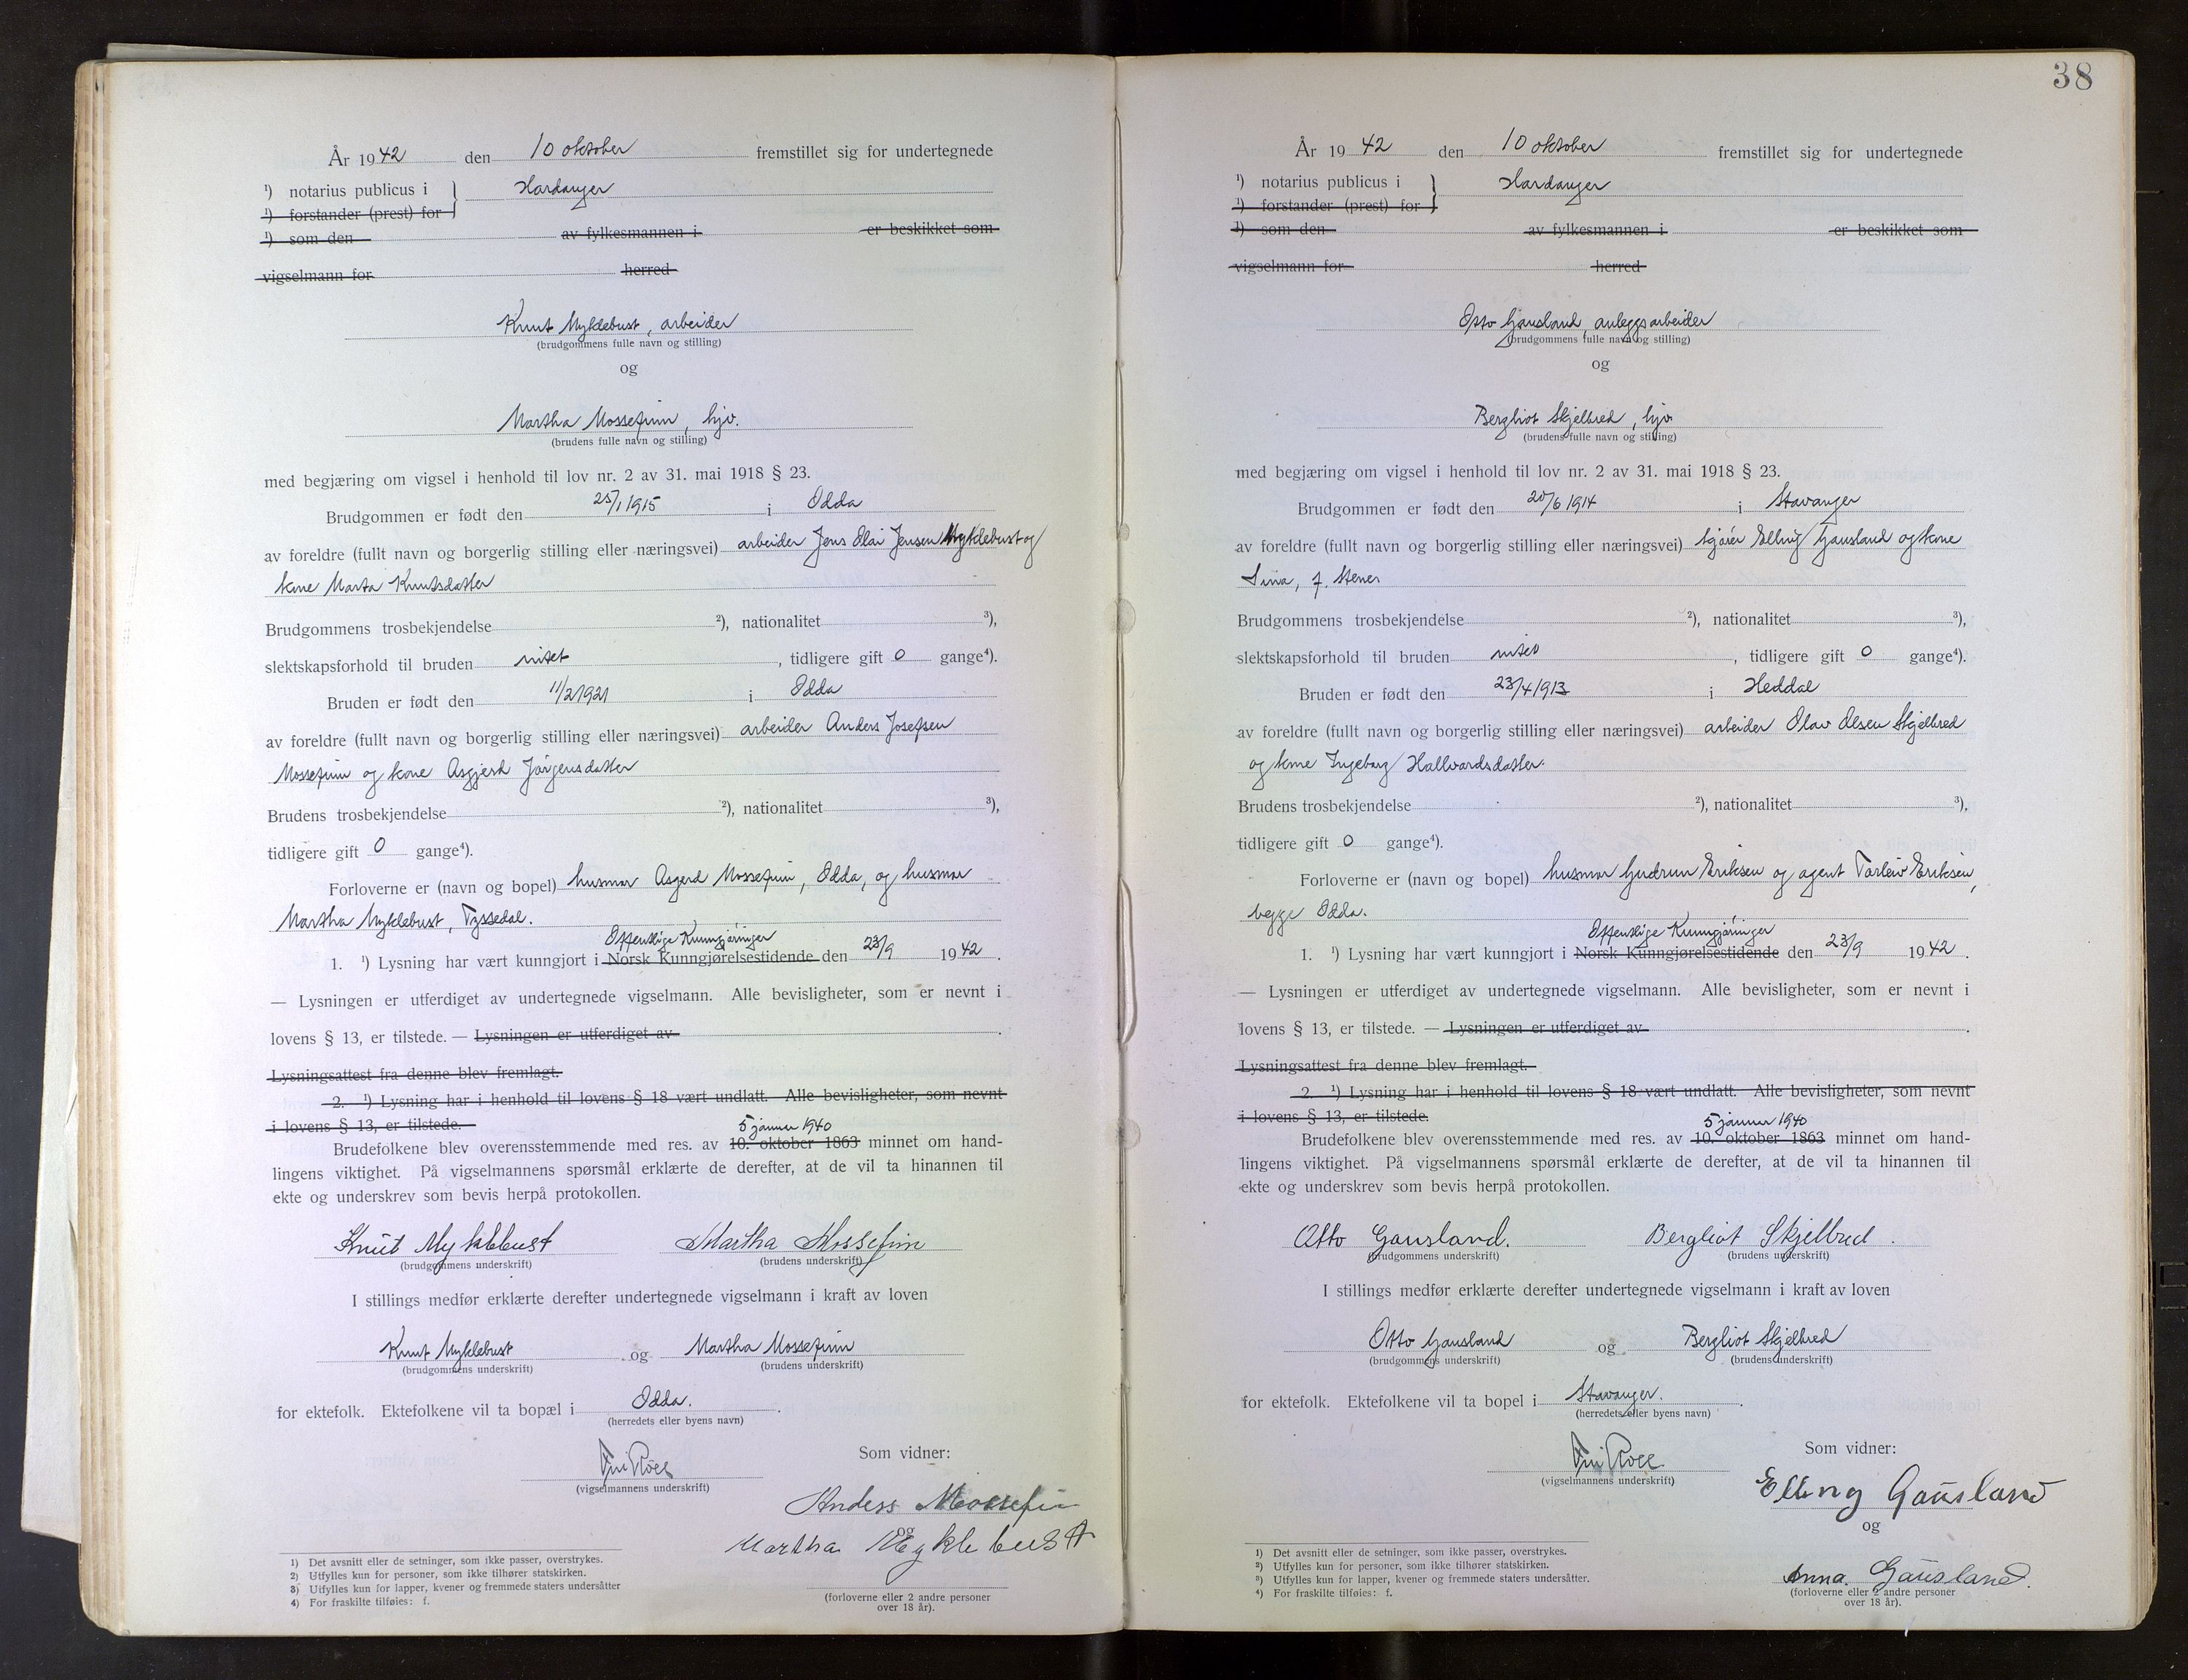 År 1942 den 10 oktober fremstillet sig for undertegnede
¹) notarius publicus i } Hardanger
¹) forstander (prest) for
¹) som den av fylkesmannen i er beskikket som
vigselmann for herred
Knut Myklebust, arbeider
(brudgommens fulle navn og stilling)
og
Martha Mossefinn, hjv.
(brudens fulle navn og stilling)
med begjæring om vigsel i henhold til lov nr. 2 av 31. mai 1918 § 23.
Brudgommen er født den 25/1 1915 i Odda
av foreldre (fullt navn og borgerlig stilling eller næringsvei) arbeider Jens Olai Jensen Myklebust og
kone Marta Knutsdatter
Brudgommens trosbekjendelse ²), nationalitet ³),
slektskapsforhold til bruden intet, tidligere gift 0 gange⁴).
Bruden er født den 11/2 1921 i Odda
av foreldre (fullt navn og borgerlig stilling eller næringsvei) arbeider Anders Josefsen
Mossefinn og kone Asgjerd Jørgensdatter
Brudens trosbekjendelse ²), nationalitet ³),
tidligere gift 0 gange⁴).
Forloverne er (navn og bopel) husmor Asgerd Mossefinn, Odda, og husmor
Martha Myklebust, Tyssedal.
Offentlige Kunngjøringer
1. ¹) Lysning har vært kunngjort i Norsk Kunngjørelsestidende den 23/9 1942.
— Lysningen er utferdiget av undertegnede vigselmann. Alle bevisligheter, som er nevnt i
lovens § 13, er tilstede. — Lysningen er utferdiget av .
Lysningsattest fra denne blev fremlagt.
2. ¹) Lysning har i henhold til lovens § 18 vært undlatt. Alle bevisligheter, som nevnt
i lovens § 13, er tilstede.
5 januar 1940
Brudefolkene blev overensstemmende med res. av 10. oktober 1863 minnet om hand-
lingens viktighet. På vigselmannens spørsmål erklærte de derefter, at de vil ta hinannen til
ekte og underskrev som bevis herpå protokollen.
Knut Myklebust Martha Mossefinn
(brudgommens underskrift) (brudens underskrift)
I stillings medfør erklærte derefter undertegnede vigselmann i kraft av loven
Knut Myklebust og Martha Mossefinn
(brudgommens underskrift) (brudens underskrift)
for ektefolk. Ektefolkene vil ta bopæl i Odda.
(herredets eller byens navn)
Som vidner:
(vigselmannens underskrift)
Anders Mossefin
og
Martha Myklebust
(forloverne eller 2 andre personer
over 18 år).
1) Det avsnitt eller de setninger, som ikke passer, overstrykes.
2) Utfylles kun for personer, som ikke tilhører statskirken.
3) Utfylles kun for lapper, kvener og fremmede staters undersåtter
4) For fraskilte tilføies: f.
38
År 1942 den 10 oktober fremstillet sig for undertegnede
¹) notarius publicus i } Hardanger
¹) forstander (prest) for
¹) som den av fylkesmannen i er beskikket som
vigselmann for herred
Otto Gausland, anleggsarbeider
(brudgommens fulle navn og stilling)
og
Bergliot Skjelbred, hjv.
(brudens fulle navn og stilling)
med begjæring om vigsel i henhold til lov nr. 2 av 31. mai 1918 § 23.
Brudgommen er født den 20/6 1914 i Stavanger
av foreldre (fullt navn og borgerlig stilling eller næringsvei) kjører Elling Gausland og kone
Sina, f. Stenes
Brudgommens trosbekjendelse ²), nationalitet ³),
slektskapsforhold til bruden intet, tidligere gift 0 gange⁴).
Bruden er født den 23/4 1913 i Heddal
av foreldre (fullt navn og borgerlig stilling eller næringsvei) arbeider Olav Olsen Skjelbred
og kone Ingeborg Hallvardsdatter.
Brudens trosbekjendelse ²), nationalitet ³),
tidligere gift 0 gange⁴).
Forloverne er (navn og bopel) husmor Gudrun Eriksen og agent Torleiv Eriksen,
begge Odda.
Offentlige Kunngjøringer
1. ¹) Lysning har vært kunngjort i Norsk Kunngjørelsestidende den 23/9 1942.
— Lysningen er utferdiget av undertegnede vigselmann. Alle bevisligheter, som er nevnt i
lovens § 13, er tilstede. — Lysningen er utferdiget av .
Lysningsattest fra denne blev fremlagt.
2. ¹) Lysning har i henhold til lovens § 18 vært undlatt. Alle bevisligheter, som nevnt
i lovens § 13, er tilstede.
5 januar 1940
Brudefolkene blev overensstemmende med res. av 10. oktober 1863 minnet om hand-
lingens viktighet. På vigselmannens spørsmål erklærte de derefter, at de vil ta hinannen til
ekte og underskrev som bevis herpå protokollen.
Otto Gausland. Bergliot Skjelbred.
(brudgommens underskrift) (brudens underskrift)
I stillings medfør erklærte derefter undertegnede vigselmann i kraft av loven
Otto Gausland og Bergliot Skjelbred
(brudgommens underskrift) (brudens underskrift)
for ektefolk. Ektefolkene vil ta bopel i Stavanger.
(herredets eller byens navn)
Som vidner:
(vigselmannens underskrift)
Elling Gausland
og
Anna. Gausland.
(forloverne eller 2 andre personer
over 18 år).
¹) Det avsnitt eller de setninger, som ikke passer, overstrykes.
²) Utfylles kun for personer, som ikke tilhører statskirken.
³) Utfylles kun for lapper, kvener og fremmede staters undersåtter.
⁴) For fraskilte tilføies: f.